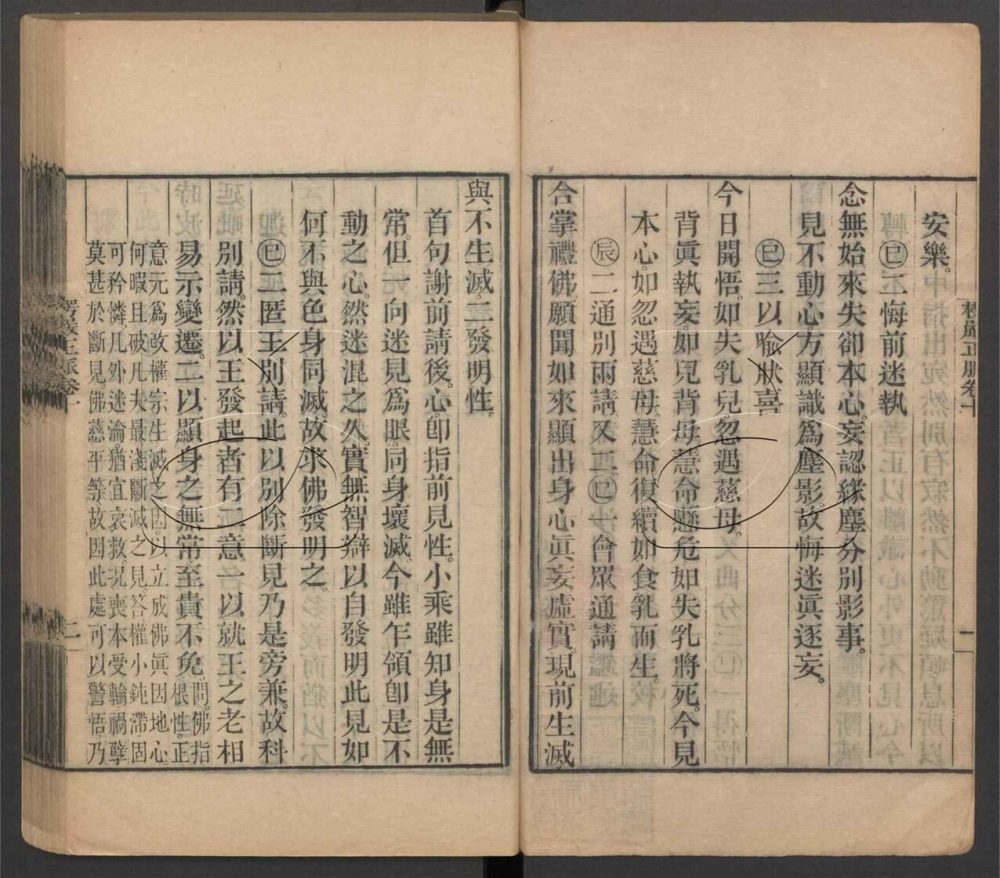 安樂。
㊁二悔前迷執
念無始來失卻本心。妄認緣塵分別影事。
見不動心。方顯識爲塵影。故悔迷眞逐妄。
㊁三以喻狀喜
今日開悟。如失乳兒。忽遇慈母。
背眞執妄。如兒背母。慧命懸危。如失乳將死。今見
本心。如忽遇慈母。慧命復續。如食乳而生。
㊀二通別兩請又二。㊁一會眾通請
合掌禮佛。願聞如來顯出身心眞妄虛實。現前生滅
與不生滅。二發明性。
首句謝前請後。心。卽指前見性。小乘雖知身是無
常。但一向迷見爲眼。同身壞滅。今雖乍領卽是不
動之心。然迷混之久。實無智辯以自發明此見如
何不與色身同滅。故求佛發明之。
㊁二匿王別請。此以別除斷見。乃是旁兼。故科
別請。然以王發起者有二意。一以就王之老相
易示變遷。二以顯身之無常。至貴不免。問。佛指根性。正
意元爲改權宗生滅之因。以立成佛眞因地心。
何暇且破凡夫最淺斷滅之見。答。權小鈍滯。固
可矜憐。凡外迷淪。猶宜哀救。況喪本受輪。禍孽
莫甚於斷見。佛慈平等。故因此處可以警悟。乃